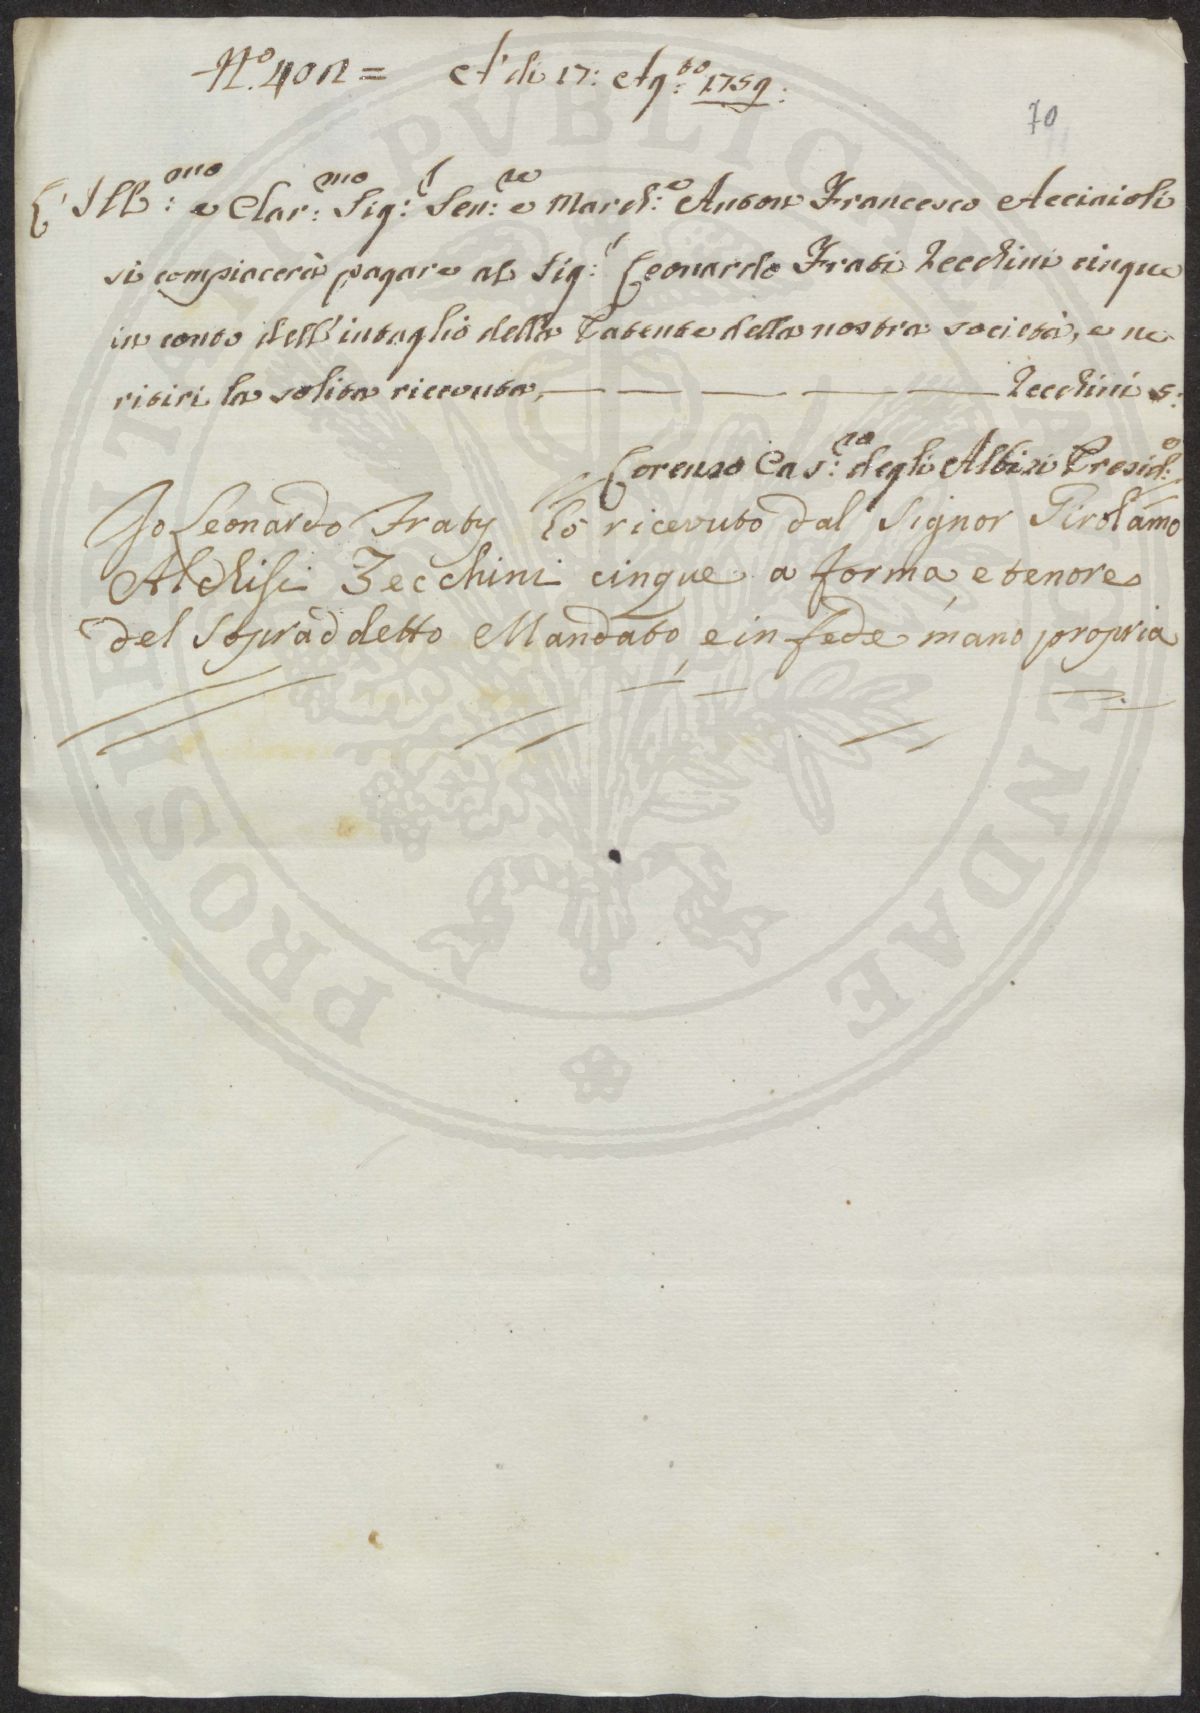 N.º 402 = A' di 17: Ag:to 1759:
70
L'Ill:mo e Clar:mo Sig:r Sen:re e March:e Anton Francesco Acciaioli
si compiacerà pagare al Sig:r Leonardo Frati Zecchini cinque
in conto dell'intaglio della Patente della nostra società, e ne
ritiri la solita ricevuta, — — — — — Zecchini 5:
Lorenzo Cas:re degli Albizi Presid:e
Io Leonardo Fraty hò ricevuto dal Signor Girolamo
Alchisi Zecchini cinque a forma, e tenore
del Sopràddetto Mandato, e in fede mano propria
PROSPERITATI PUBLICAE AUGENDAE